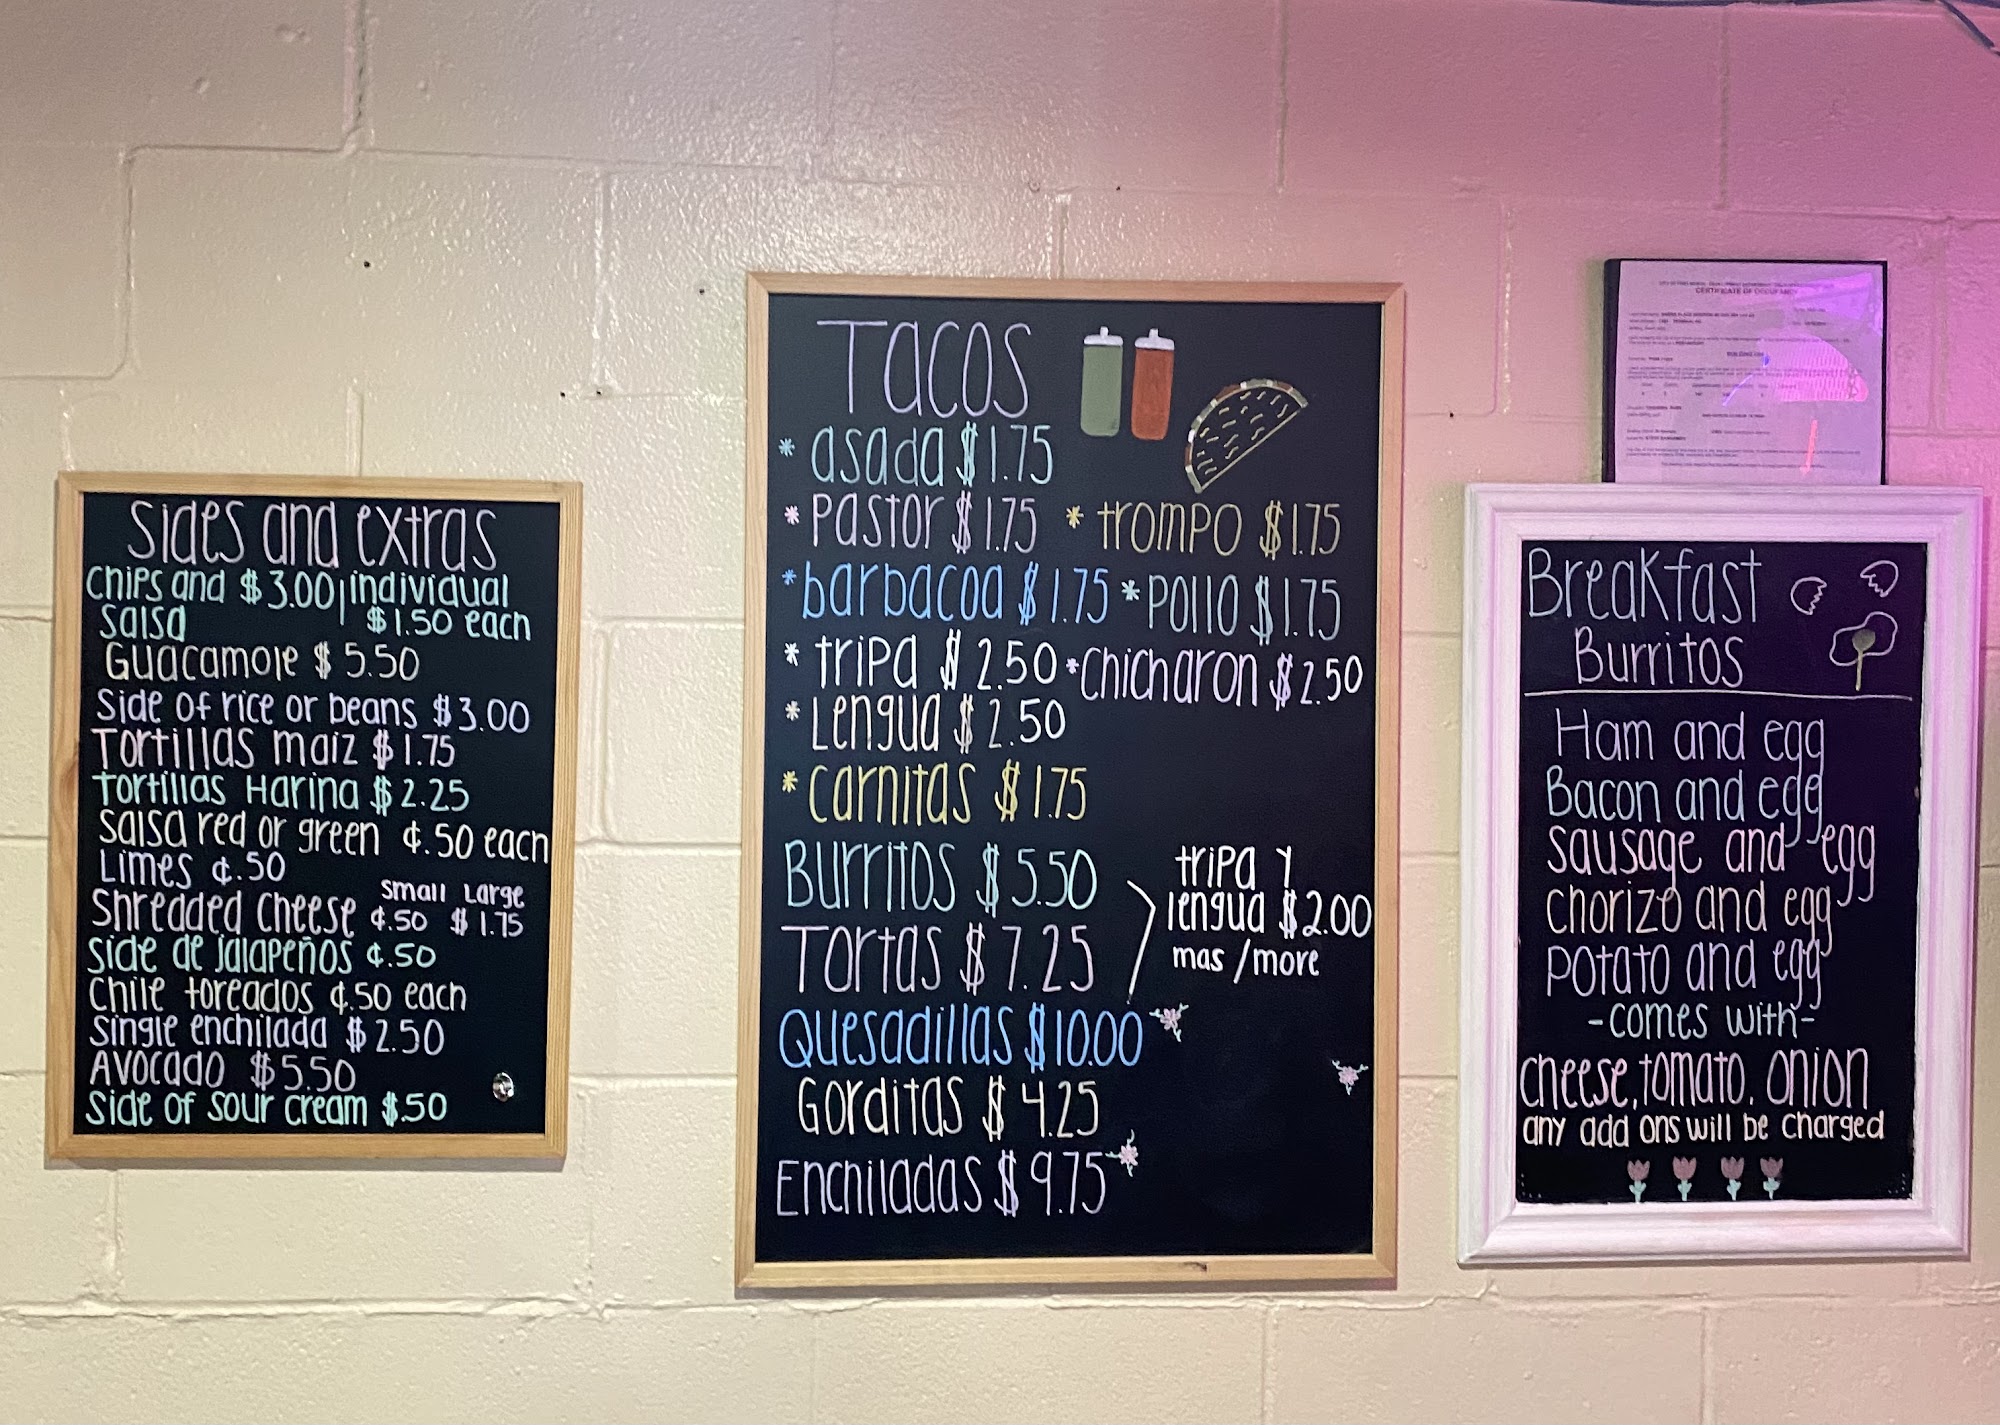 Sides and extras
Chips and $3.00 | individual
salsa $1.50 each
Guacamole $5.50
side of rice or beans $3.00
Tortillas maiz $1.75
Tortillas Harina $2.25
salsa red or green ¢.50 each
Limes ¢.50
small Large
shreaded cheese ¢.50 $1.75
side de jalapeños ¢.50
chile toreados ¢.50 each
single enchilada $2.50
Avocado $5.50
side of sour cream $.50
Tacos
* asada $1.75
* Pastor $1.75 * trompo $1.75
* barbacoa $1.75 * Pollo $1.75
* tripa $2.50 * Chicharon $2.50
* Lengua $2.50
* Carnitas $1.75
Burritos $5.50
Tortas $7.25
tripa y
lengua $2.00
mas / more
Quesadillas $10.00
Gorditas $4.25
Enchiladas $9.75
CERTIFICATE OF OCCUPANCY
Breakfast
Burritos
Ham and egg
Bacon and egg
sausage and egg
chorizo and egg
Potato and egg
- comes with -
cheese, tomato, onion
any add ons will be charged